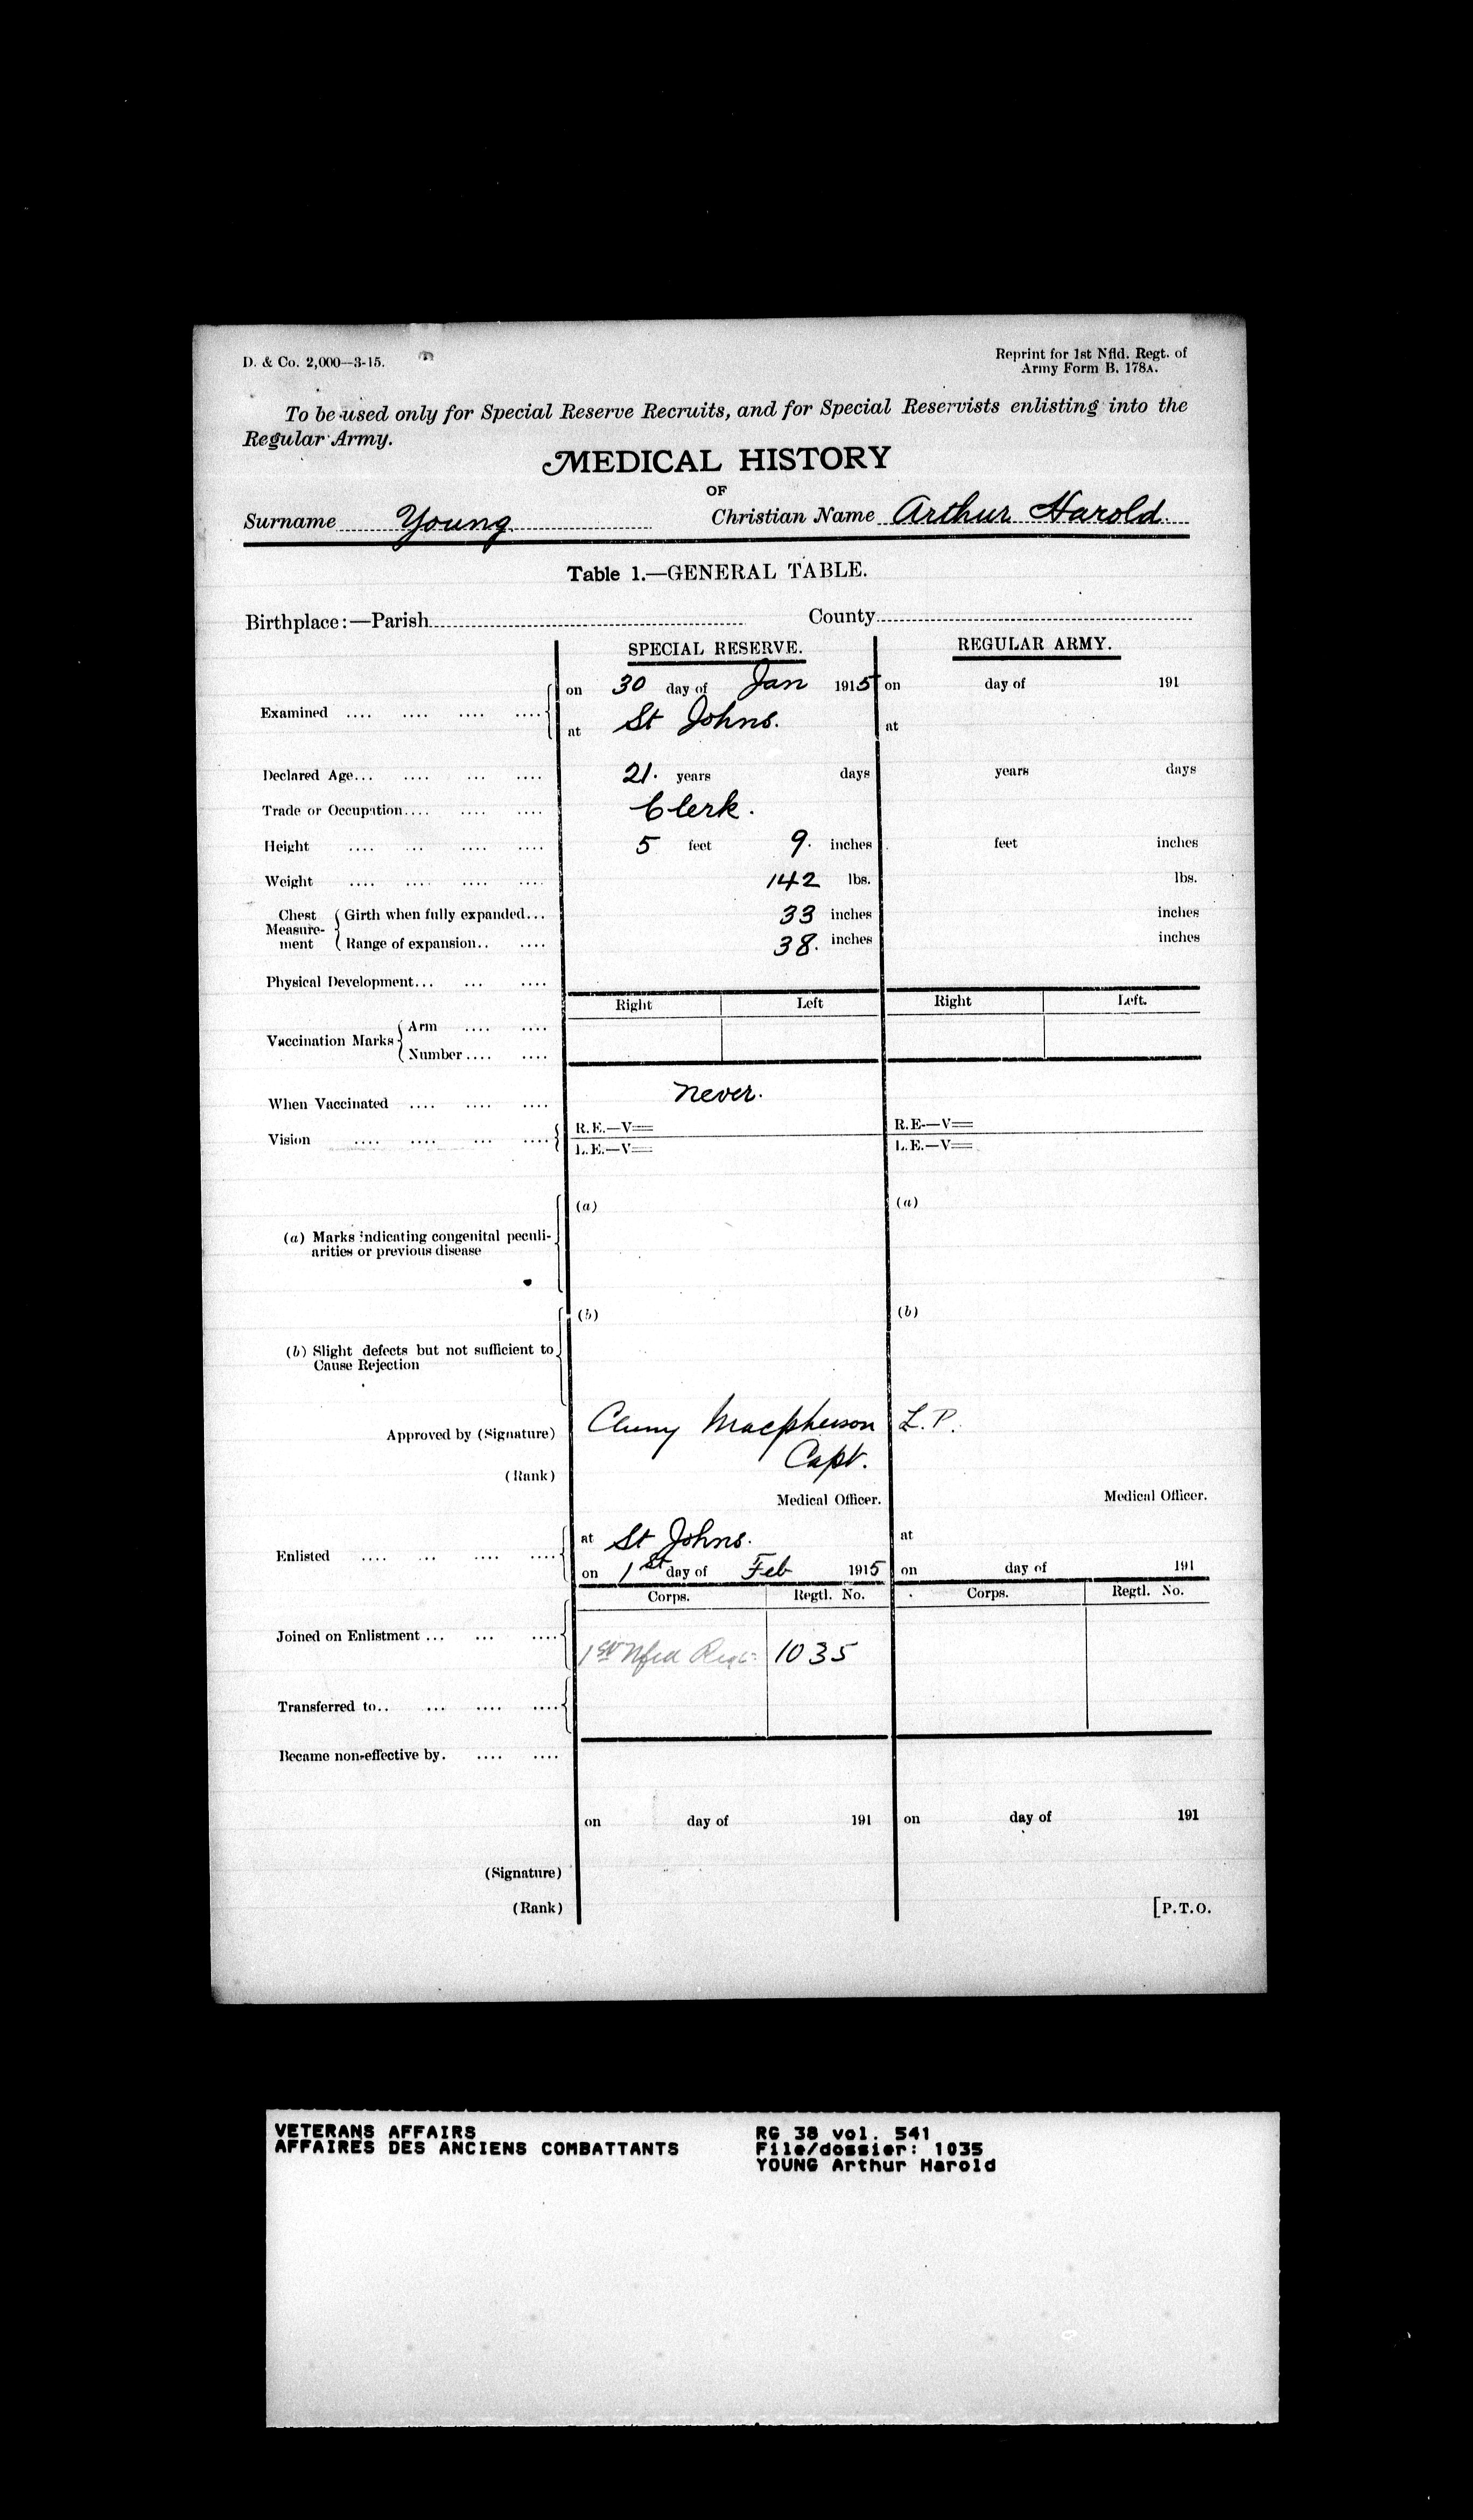 D. & Co. 2,000—3-15.
Reprint for 1st Nfld. Regt. of
Army Form B. 178A.
To be used only for Special Reserve Recruits, and for Special Reservists enlisting into the
Regular Army.
MEDICAL HISTORY
OF
Surname Young Christian Name Arthur Harold
Table 1.—GENERAL TABLE.
Birthplace:—Parish County
SPECIAL RESERVE. REGULAR ARMY.
Examined .... .... .... .... on 30 day of Jan 1915 on day of 191
at St Johns. at
Declared Age... .... ... .... 21. years days years days
Trade or Occupation.... .... .... Clerk.
Height .... ... .... .... 5 feet 9. inches feet inches
Weight .... .... .... .... 142 lbs. lbs.
Chest Measure-ment Girth when fully expanded... 33 inches inches
Range of expansion.. .... 38. inches inches
Physical Development... ... ....
Right Left Right Left.
Vaccination Marks Arm .... ....
Number.... ....
When Vaccinated .... .... .... never.
Vision .... .... ... .... R.E.—V= R.E—V=
L.E.—V= L.E.—V=
(a) (a)
(a) Marks indicating congenital peculi-
arities or previous disease
(b) (b)
(b) Slight defects but not sufficient to
Cause Rejection
Approved by (Signature) Cluny Macpherson L.P.
(Rank) Capt.
Medical Officer. Medical Officer.
Enlisted .... ... .... .... at St Johns. at
on 1st day of Feb 1915 on day of 191
Corps. Regtl. No. Corps. Regtl. No.
Joined on Enlistment ... ... .... 1st Nfld Regt. 1035
Transferred to.. ... .... ....
Became non-effective by. .... ....
on day of 191 on day of 191
(Signature)
(Rank)
[P.T.O.
VETERANS AFFAIRS
AFFAIRES DES ANCIENS COMBATTANTS
RG 38 vol. 541
File/dossier: 1035
YOUNG Arthur Harold